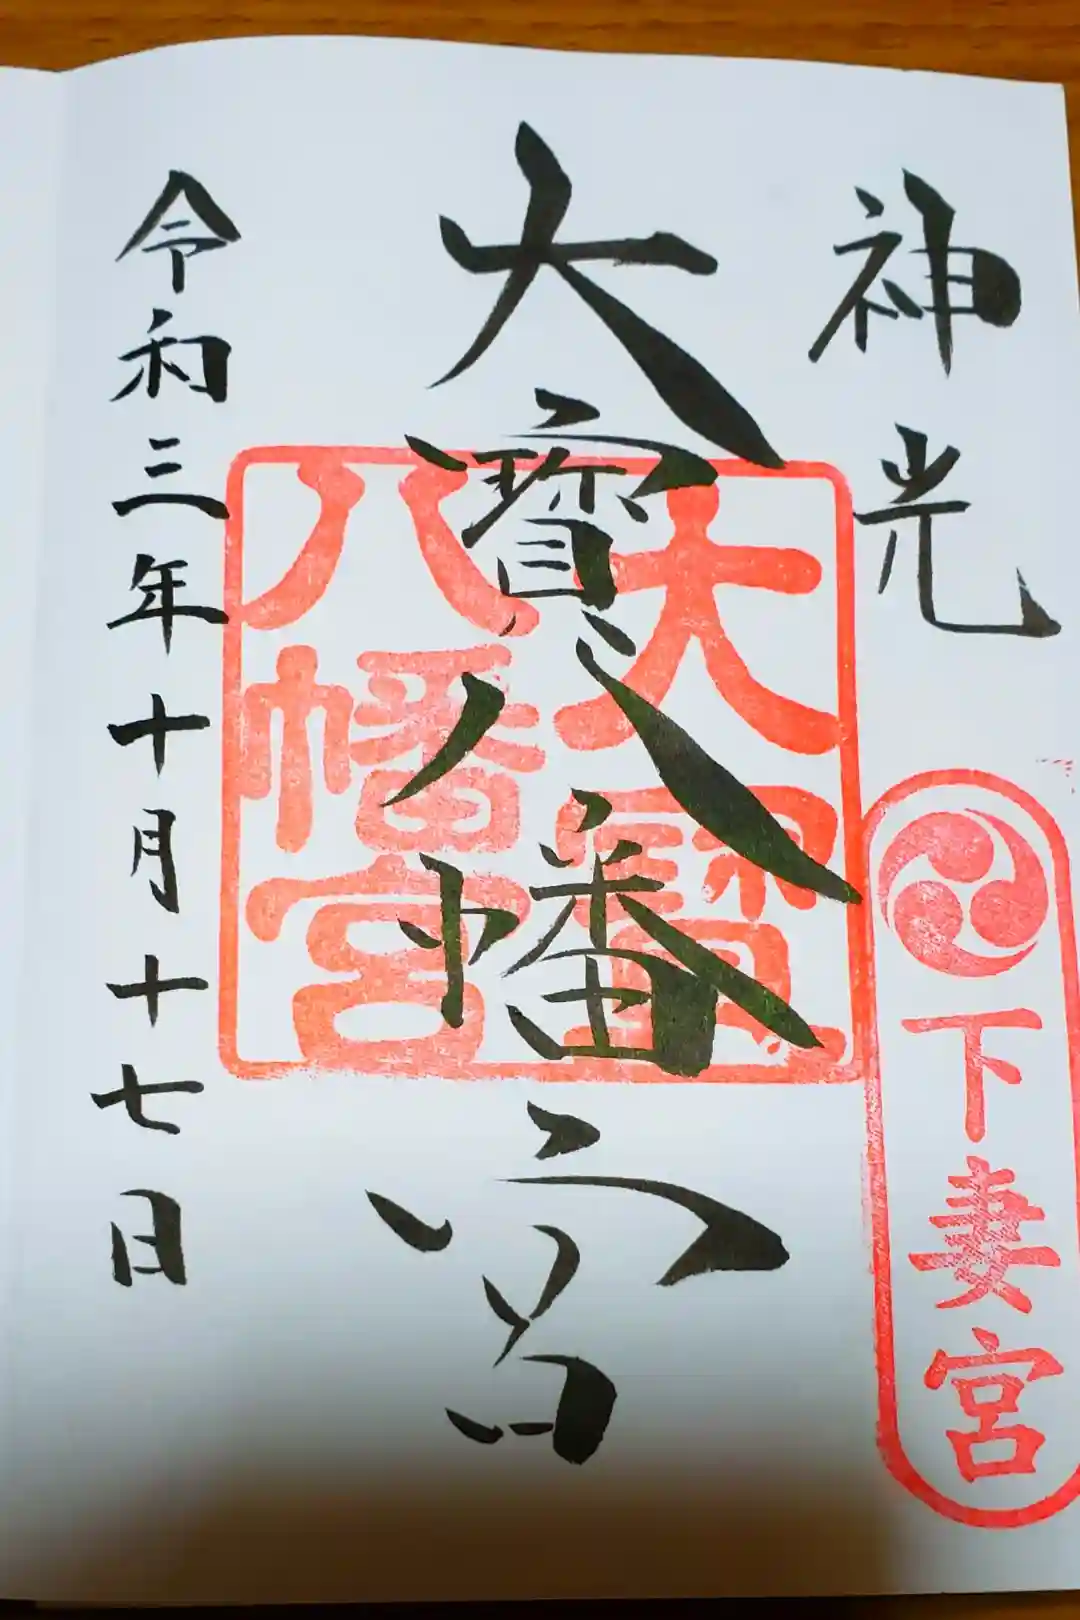 神光
下妻宮
大寳八幡宮
大寳
八幡宮
令和三年十月十七日